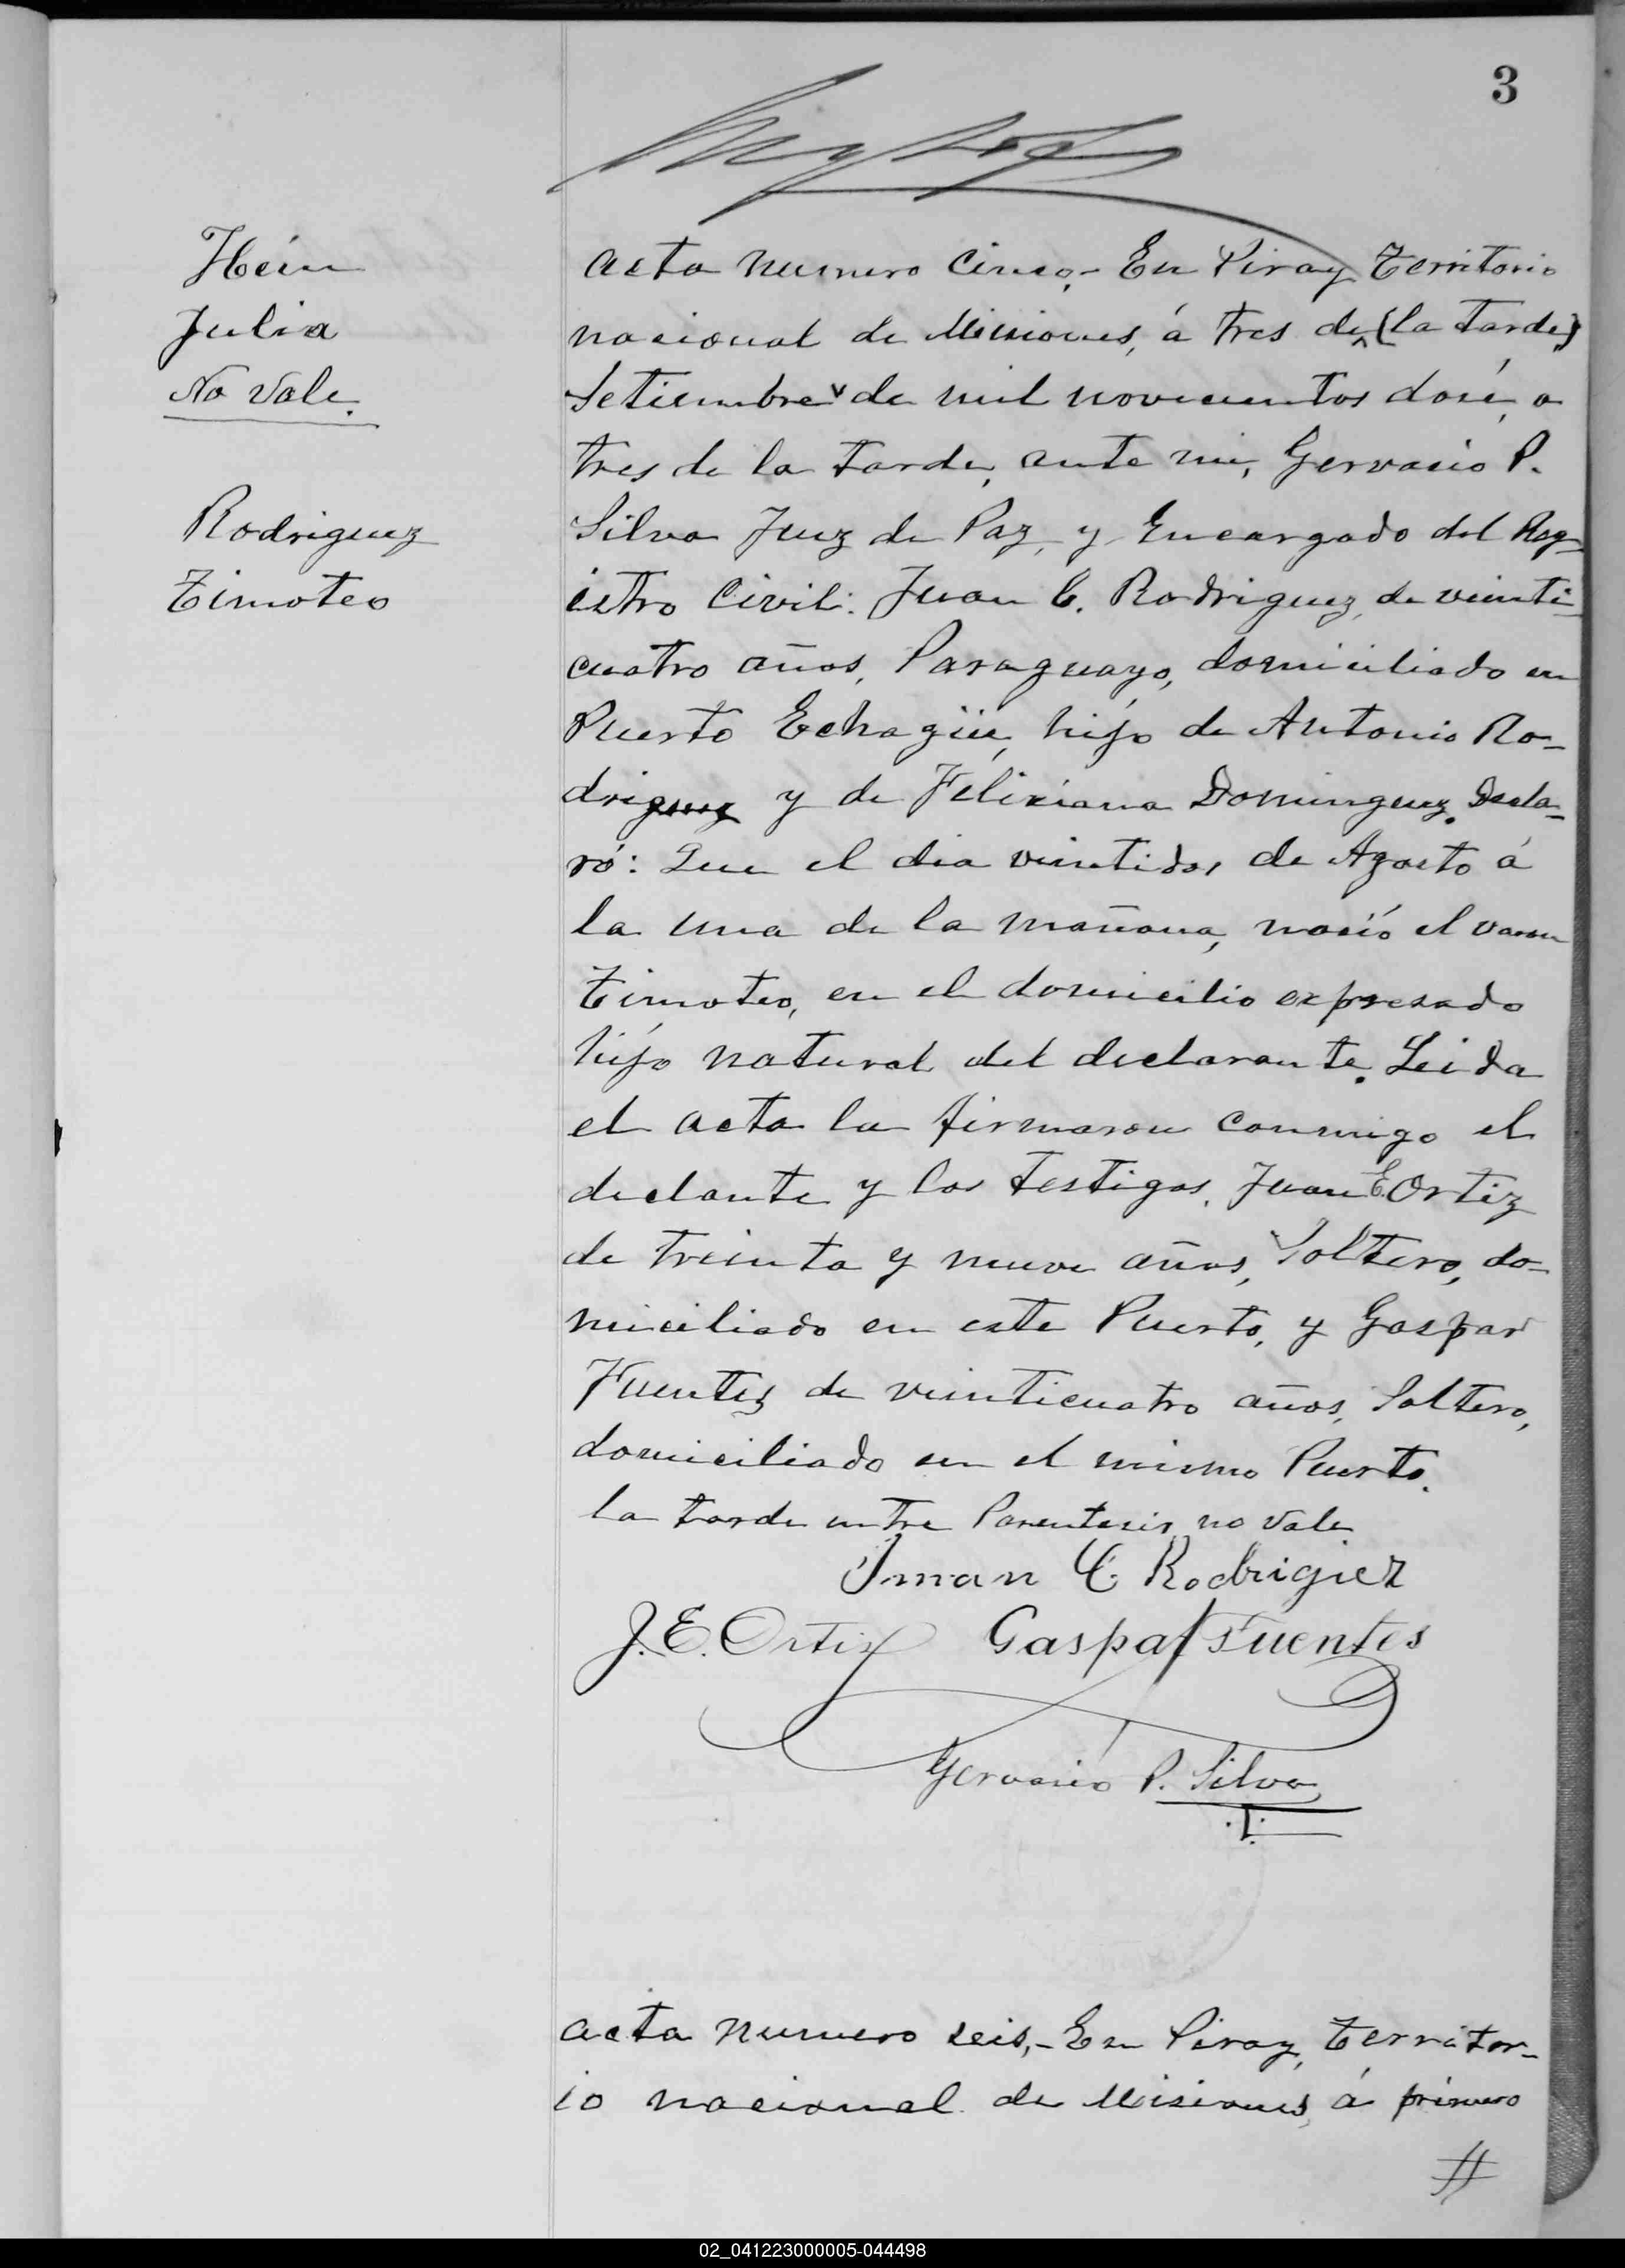 3
Hein
Julia
No Vale.
Rodriguez
Timoteo
Acta numero Cinco,- En Piray Territorio
nacional de Misiones, á tres de (la tarde)
Setiembre de mil novecientos dosé, a
tres de la tarde, ante mi, Gervasio P.
Silva Juez de Paz, y Encargado del Reg-
istro Civil: Juan C. Rodriguez, de veinti-
cuatro años, Paraguayo, domiciliado en
Puerto Echagüe, hijo de Antonio Ro-
driguez y de Feliciana Dominguez. Decla-
ró: Que el dia veintidos de Agosto á
la una de la mañana, nació el varon
Timoteo, en el domicilio expresado
hijo natural del declarante. Leida
el acta la firmaron conmigo el
declante y los testigos, Juan E. Ortiz
de treinta y nueve años, Soltero, do-
miciliado en este Puerto, y Gaspar
Fuentes de veinticuatro años, Soltero,
domiciliado en el mismo Puerto.
la tarde entre Parentesis no Vale
Juan C Rodrigiez
J. E. Ortiz Gaspar Fuentes
Gervasio P. Silva
Acta numero seis,- En Piray, Territor-
io nacional de Misiones, á primero
//
02_041223000005-044498